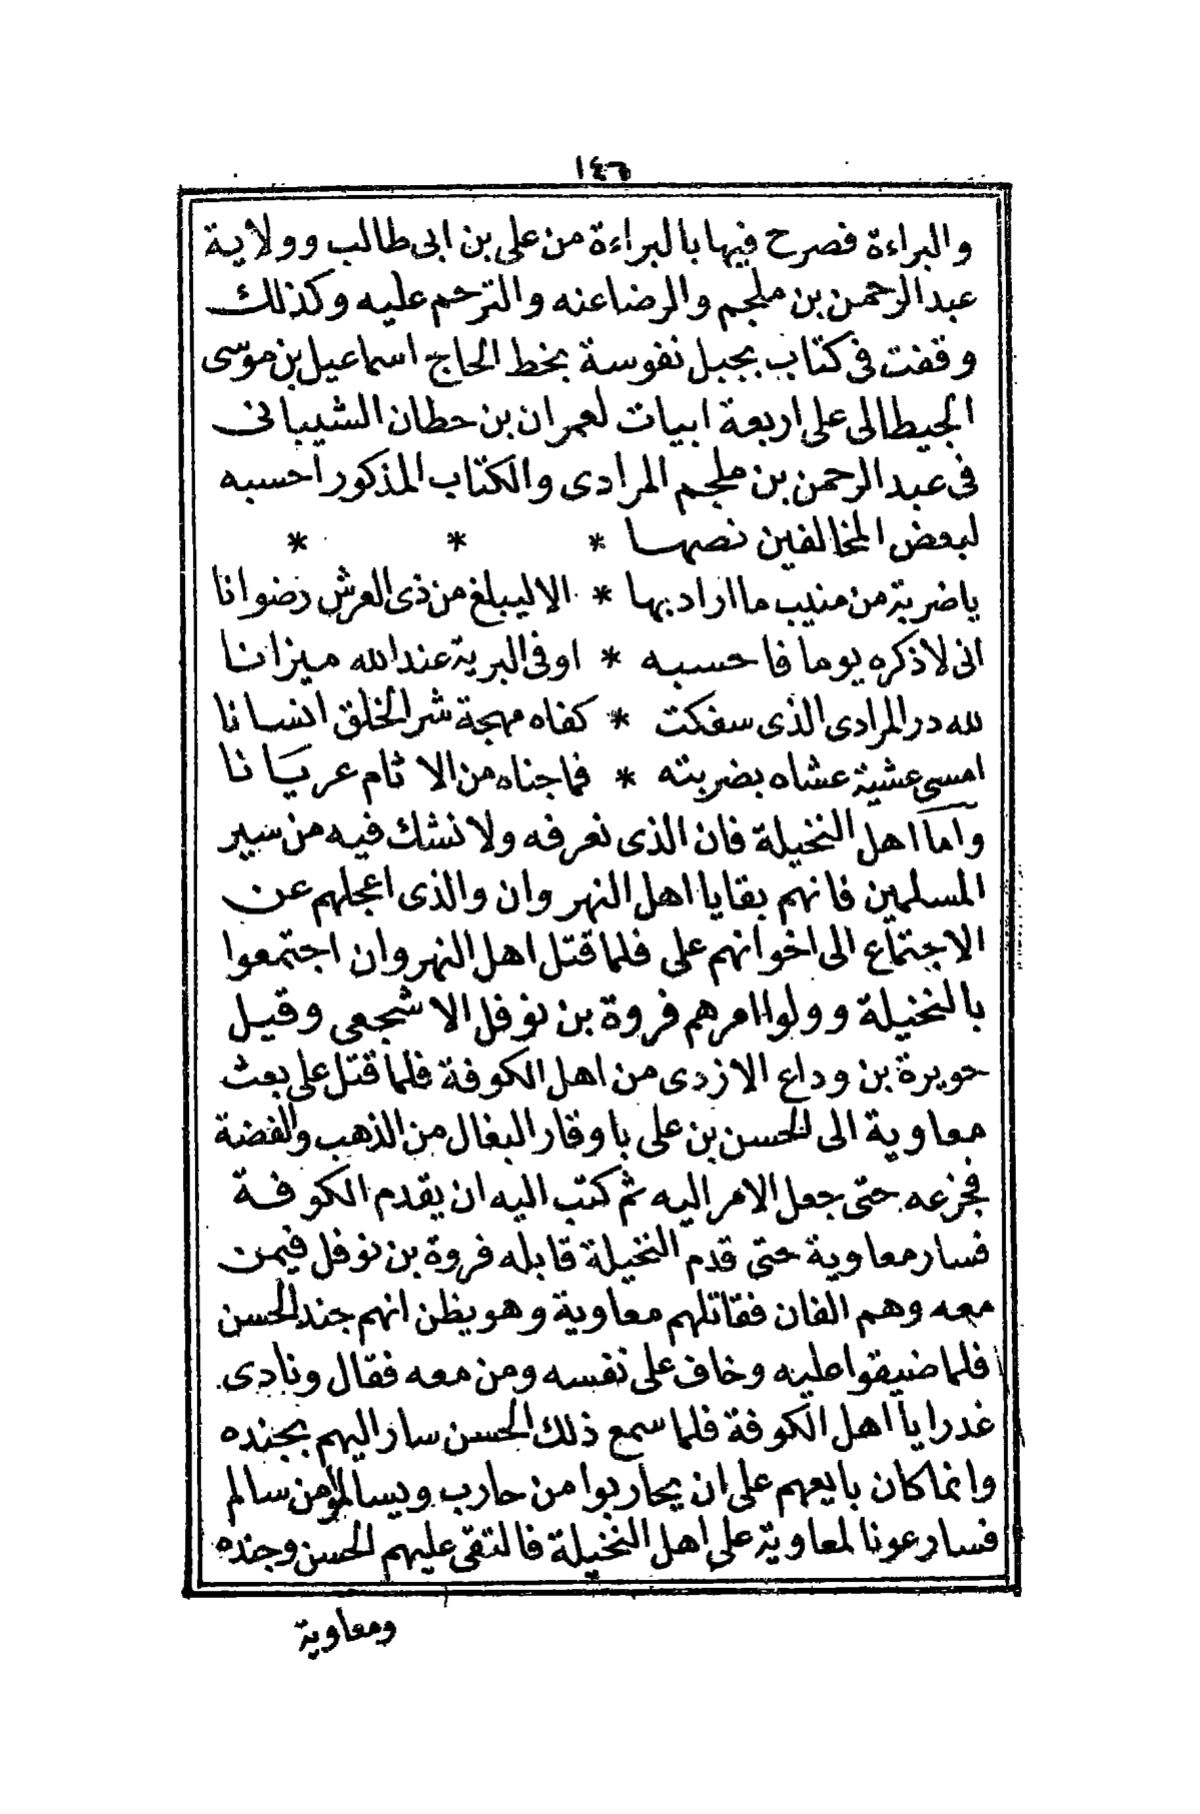 ١٤٦
والبراءة فصرح فيها بالبراءة من على بن ابى طالب وولاية
عبد الرحمن بن ملجم والرضا عنه والترحم عليه وكذلك
وقفت فى كتاب بجبل نفوسة بخط الحاج اسماعيل بن موسى
الجيطالى على اربعة ابيات لعمران بن حطان الشيبانى
فى عبد الرحمن بن ملجم المرادى والكتاب المذكور احسبه
لبعض المخالفين نصها * * *
ياضربة من منيب ما اراد بها * الا ليبلغ من ذى العرش رضوانا
انى لاذكره يوما فاحسبه * اوفى البرية عند الله ميزانا
لله در المرادى الذى سفكت * كفاه مهجة شر الخلق انسانا
امسى عشية عشاه بضربته * فما جناه من الاثام عريانا
وأما اهل النخيلة فان الذى نعرفه ولا نشك فيه من سير
المسلمين فانهم بقايا اهل النهروان والذى اعجلهم عن
الاجتماع الى اخوانهم على فلما قتل اهل النهروان اجتمعوا
بالنخيلة وولوا امرهم فروة بن نوفل الاشجعى وقيل
حويرة بن وداع الازدى من اهل الكوفة فلما قتل على بعث
معاوية الى الحسن بن على باوقار البغال من الذهب والفضة
فجزعه حتى جعل الامر اليه ثم كتب اليه ان يقدم الكوفة
فسار معاوية حتى قدم النخيلة قابله فروة بن نوفل فيمن
معه وهم الفان فقاتلهم معاوية وهو يظن انهم جند الحسن
فلما ضيقوا عليه وخاف على نفسه ومن معه فقال ونادى
غدرا يا اهل الكوفة فلما سمع ذلك الحسن سار اليهم بجنده
وانما كان بايعهم على ان يحاربوا من حارب ويسالموا من سالم
فسار عونا لمعاوية على اهل النخيلة فالتقى عليهم الحسن وجنده
ومعاوية